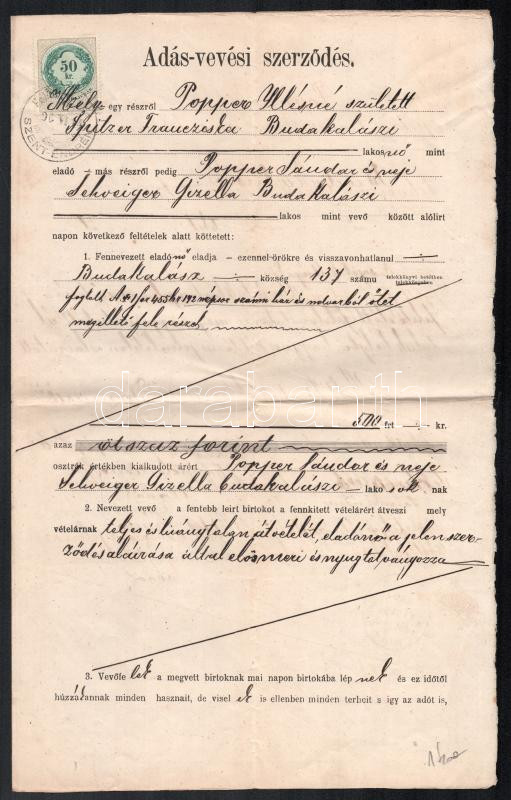 50
kr.
Adás-vevési szerződés.
Mely egy részről Popper Illésné született
Spitzer Francziska Budakalászi
lakosnő mint
eladó más részről pedig Popper Sándor és neje
Schveiger Gizella Budakalászi
lakos mint vevő között alólirt
napon következő feltételek alatt köttetett:
1. Fennevezett eladónő eladja – ezennel-örökre és visszavonhatlanul
Budakalász község 137 számu telekkönyvi betétben
foglalt A 1 sor 455 hr 192 népsor számú ház és udvarból őtet
megillető fele részét
darabanth
500 frt kr.
azaz ötszáz forint
osztrák értékben kialkudott árért Popper Sándor és neje
Schveiger Gizella budakalászi lakosok nak
2. Nevezett vevő a fentebb leirt birtokot a fennkitett vételárért átveszi mely
vételárnak teljes és hiánytalan átvételét, eladónő a jelen szer-
ződés aláirása által elösmeri és nyugtatványozza
3. Vevőfelek a megvett birtoknak mai napon birtokába lépnek és ez időtől
húzzák annak minden hasznait, de viselik is ellenben minden terheit s igy az adót is,